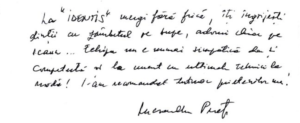 La "IDENTIS" mergi fără frică, îți îngrijești
dinții cu zâmbetul pe buze, adormi chiar pe
scaun... Echipa nu e numai simpatică dar și
competentă și la curent cu ultimele tehnici la
modă! I-am recomandat tuturor prietenilor mei!
Alexandru